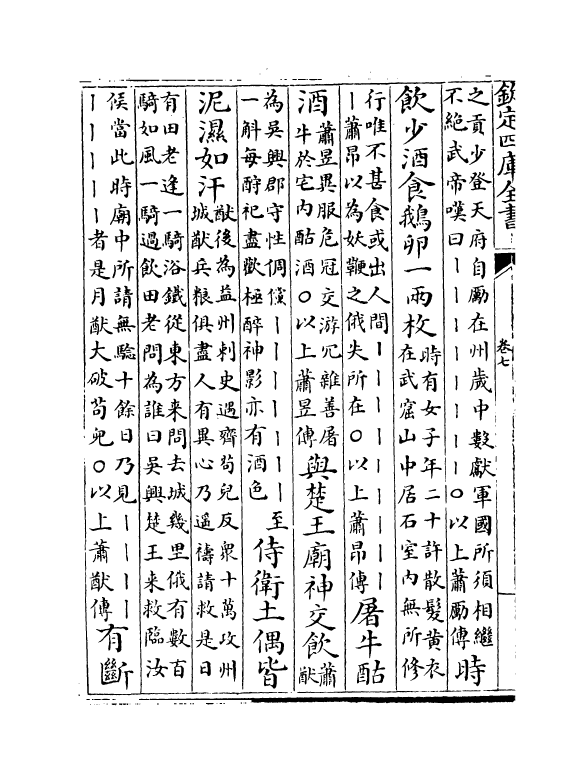 欽定四庫全書
卷七
之貢少登天府自勵在州歲中數獻軍國所須相繼
不絶武帝嘆曰丨丨丨丨丨丨丨丨丨○以上蕭勵傳
時
飲少酒食鵝卵一兩枚
時有女子年二十許散髮黄衣
在武窟山中居石室内無所修
行唯不甚食或出人間丨丨丨丨丨丨丨丨
丨蕭昂以為妖鞭之俄失所在○以上蕭昂傳
屠牛酤
酒
蕭昱異服危冠交游冗雜善屠
牛於宅内酤酒○以上蕭昱傳
與楚王廟神交飲
蕭
猷
為吳興郡守性倜儻丨丨丨丨丨丨丨至
一斛每酹祀盡歡極醉神影亦有酒色
侍衛土偶皆
泥濕如汗
猷後為益州刺史遇齊苟兒反衆十萬攻州
城猷兵粮俱盡人有異心乃遥禱請救是日
有田老逢一騎浴鐵從東方来問去城幾里俄有數百
騎如風一騎過飲田老問為誰曰吳興楚王来救臨汝
侯當此時廟中所請無驗十餘日乃見丨丨丨丨
丨丨丨丨丨者是月猷大破苟兒○以上蕭猷傳
有斷